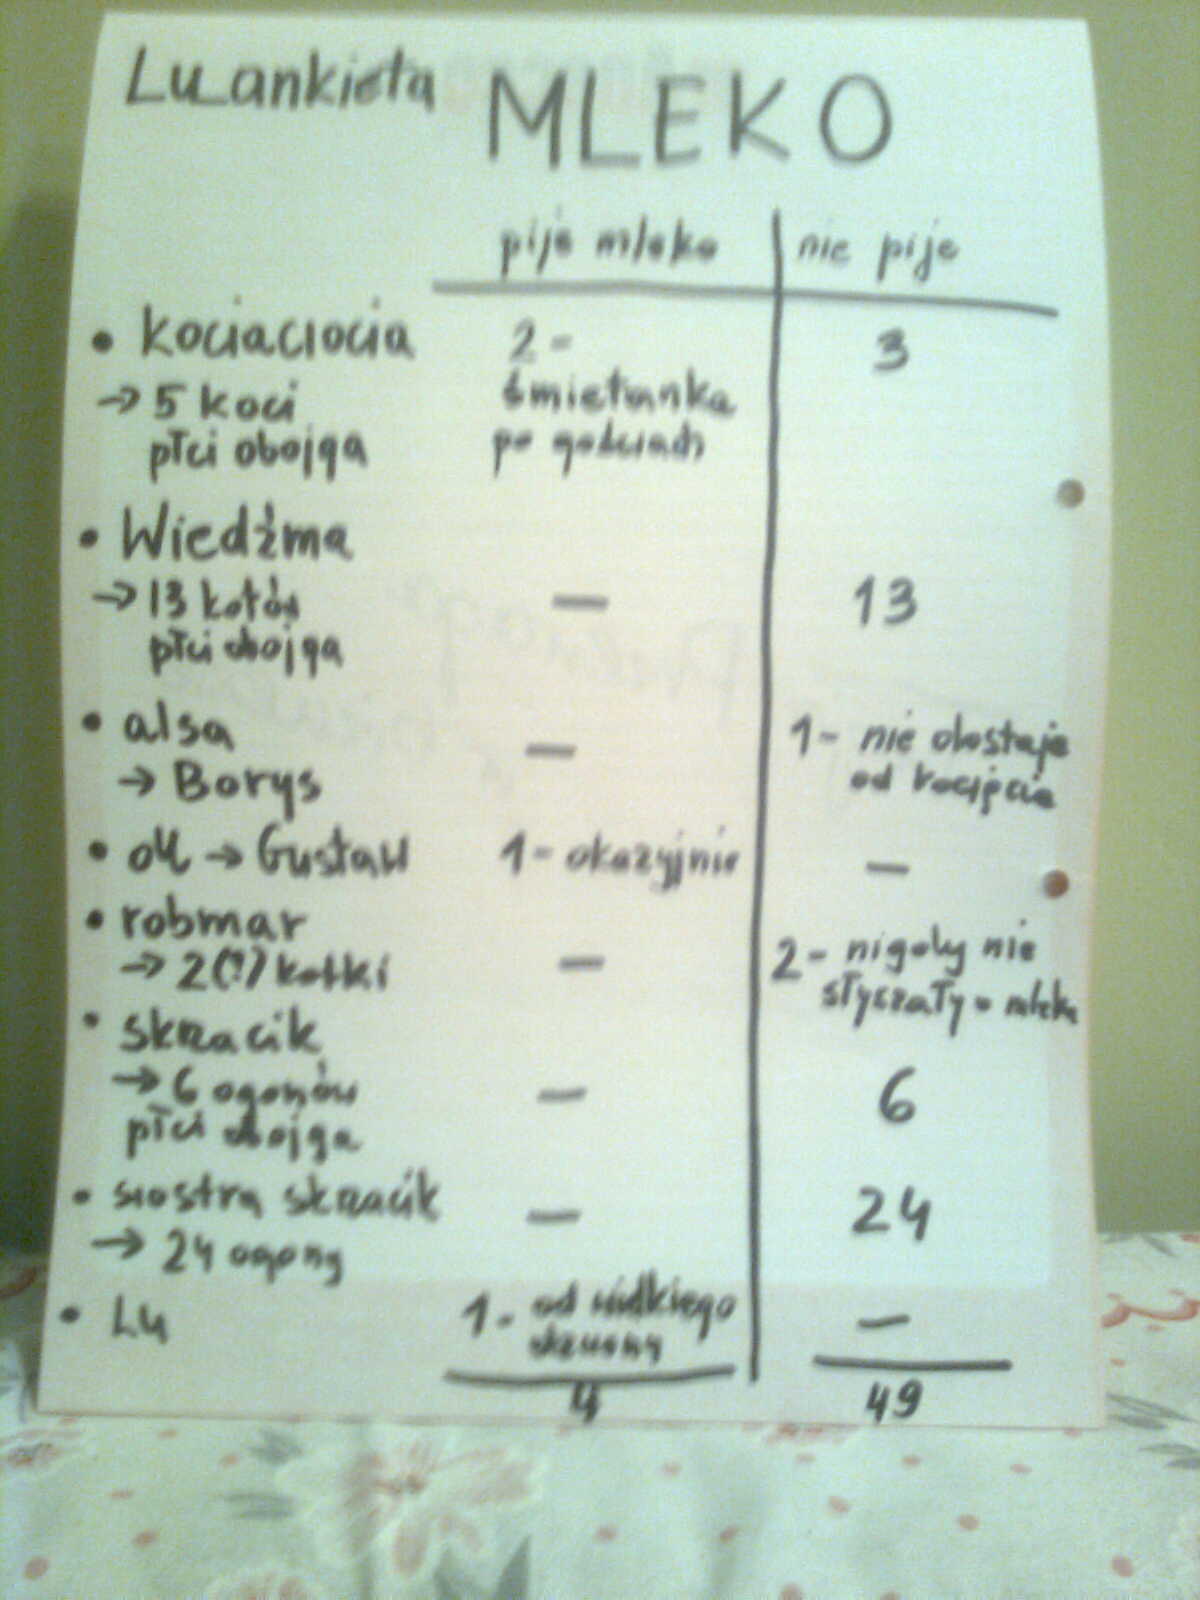 Lu_ankieta MLEKO
pije mleko nie pije
• kociaciocia 2 - 3
→ 5 koci śmietanka
płci obojga po gościach
• Wiedźma
→ 13 kotów — 13
płci obojga
• alsa — 1 - nie dostaje
→ Borys od kocięcia
• → Gustaw 1 - okazyjnie —
• robmar
→ 2(?) kotki — 2 - nigdy nie
słyszały o mleku
• skrzacik
→ 6 ogonów — 6
płci obojga
• siostra skrzacik — 24
→ 24 ogony
• Lu 1 - od wielkiego —
dzwonu
4 49